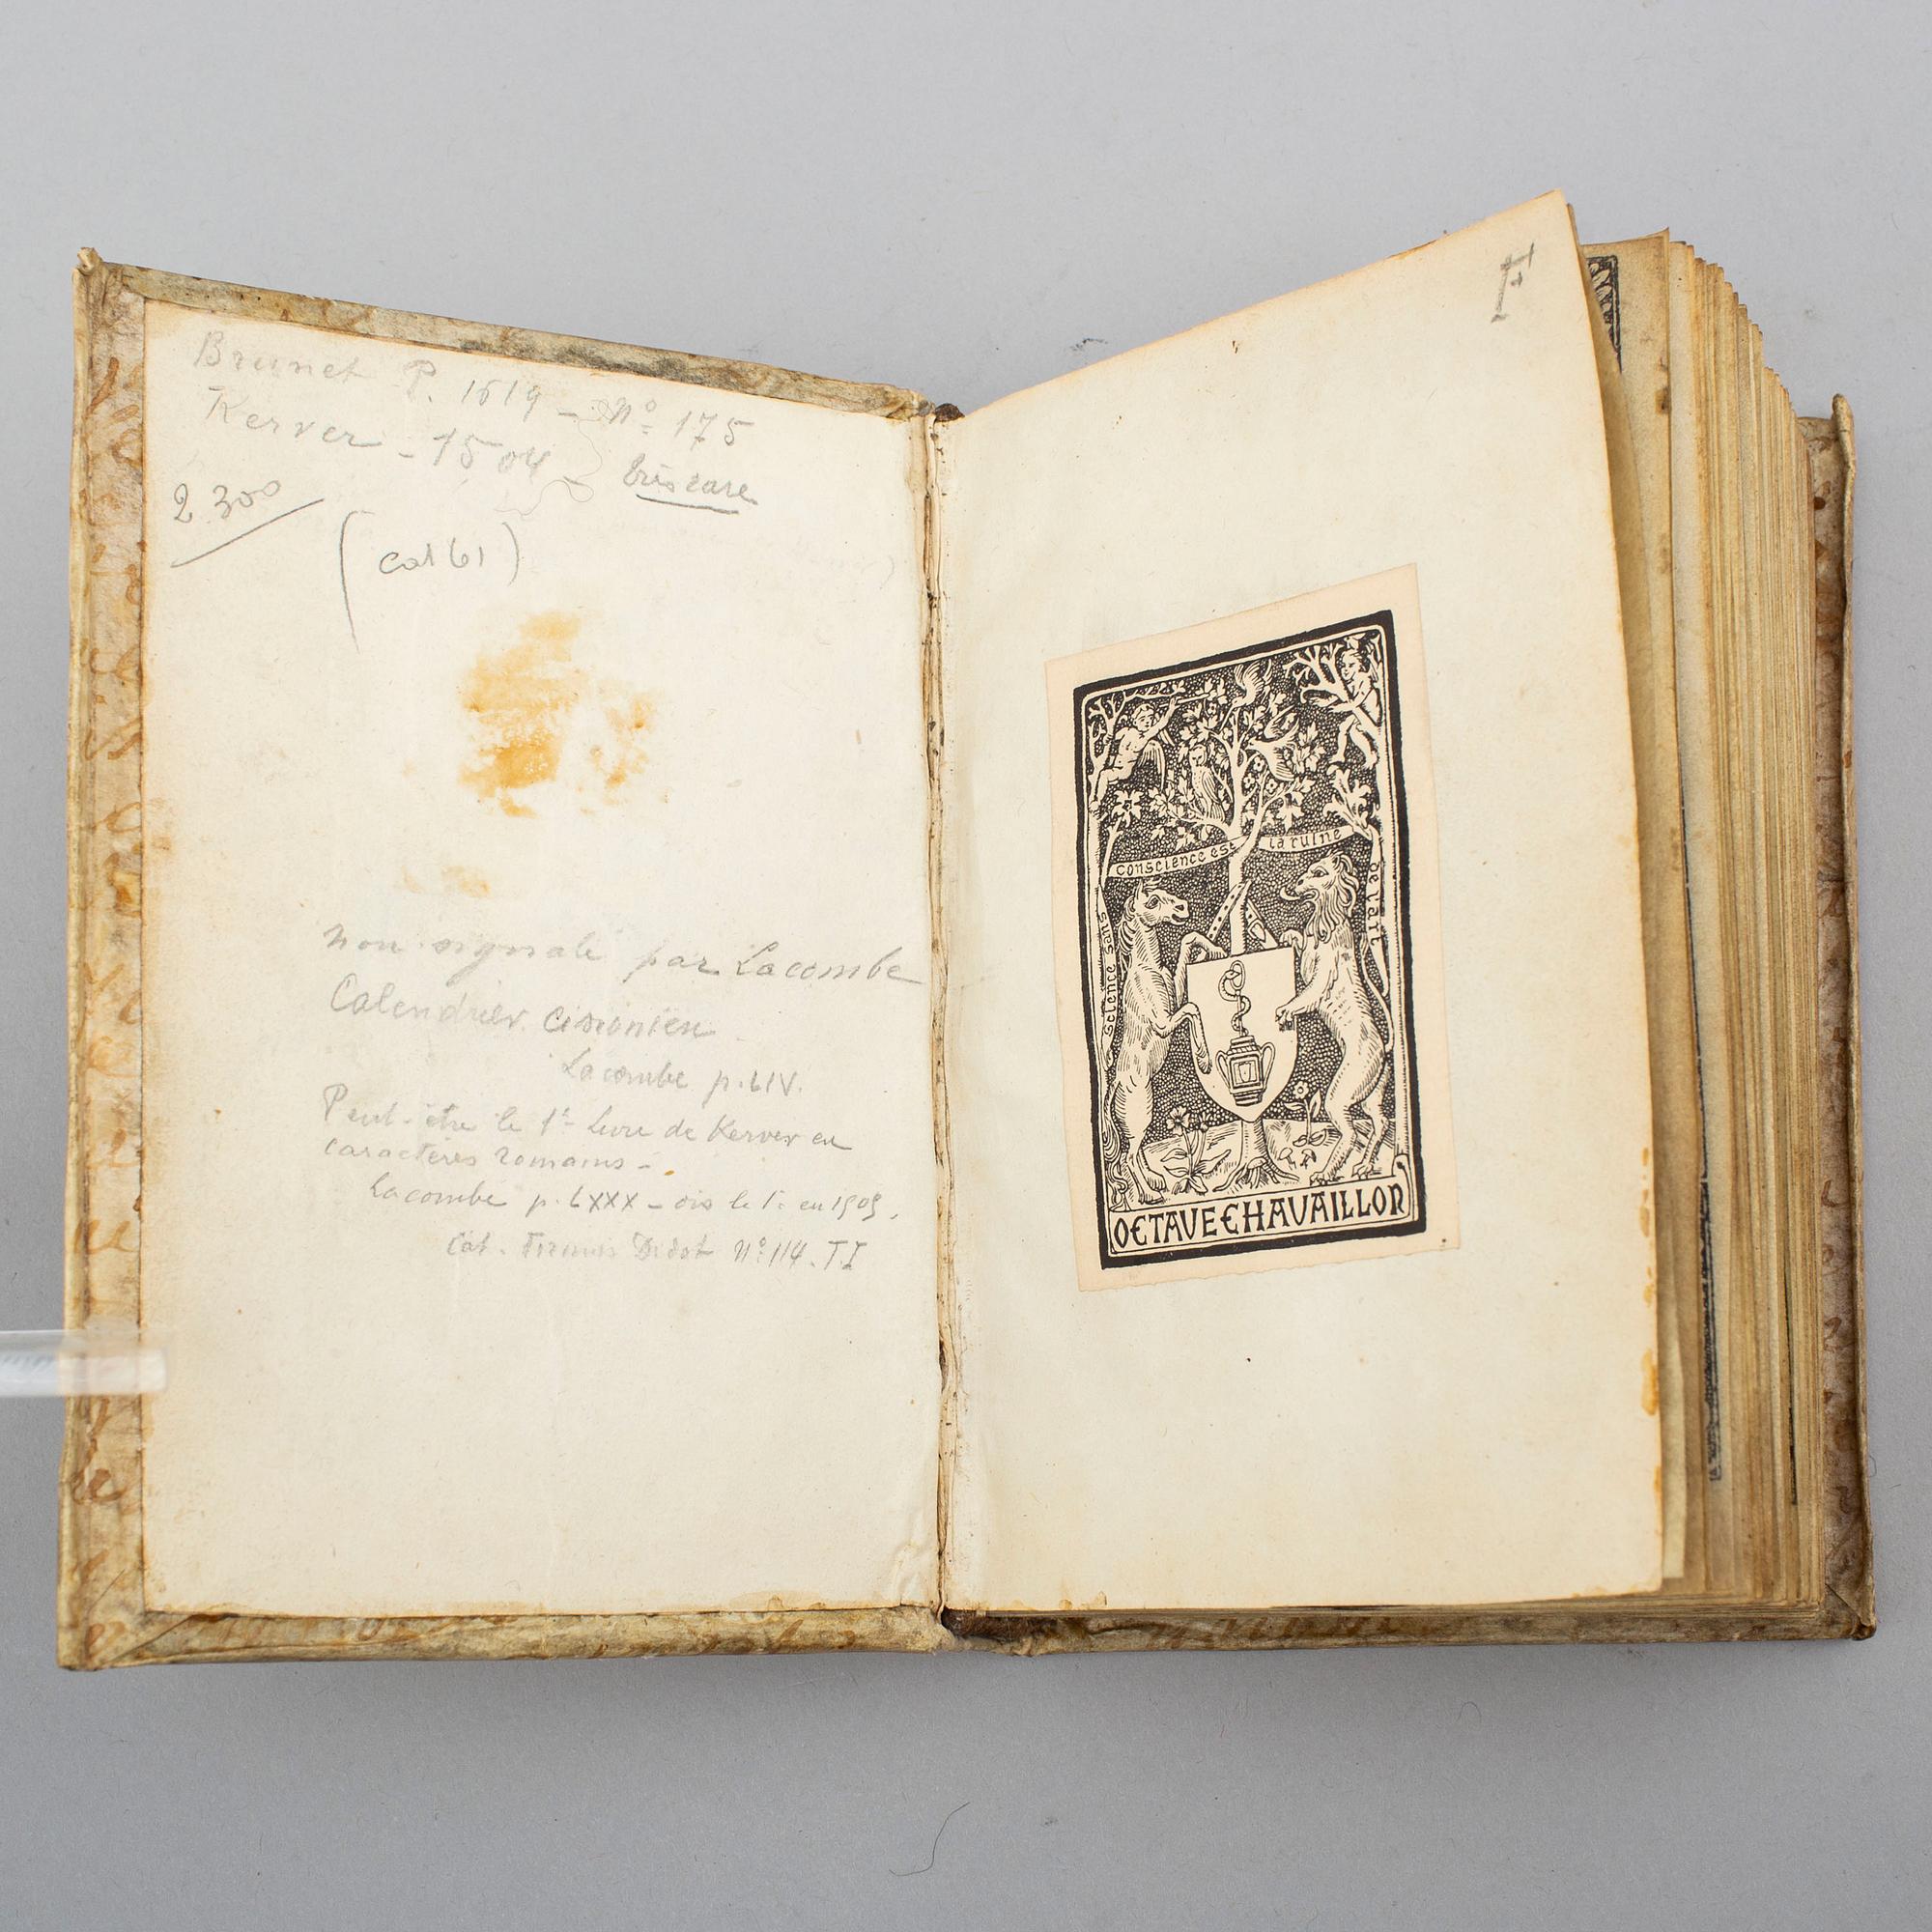 Brunet P. 1619 – Nº 175
Kerver – 1504 – très rare
2 300
(cat 61)
non signalé par Lacombe
Calendrier cisionien
Lacombe p. LIV.
Peut-être le 1º livre de Kerver en
caractères romains –
Lacombe p. LXXX – le 1º en 1505,
Cat. Firmin Didot Nº 114. T.I
F
science sans
conscience est
la ruine
de l'âme
OCTAVE CHAVAILLON